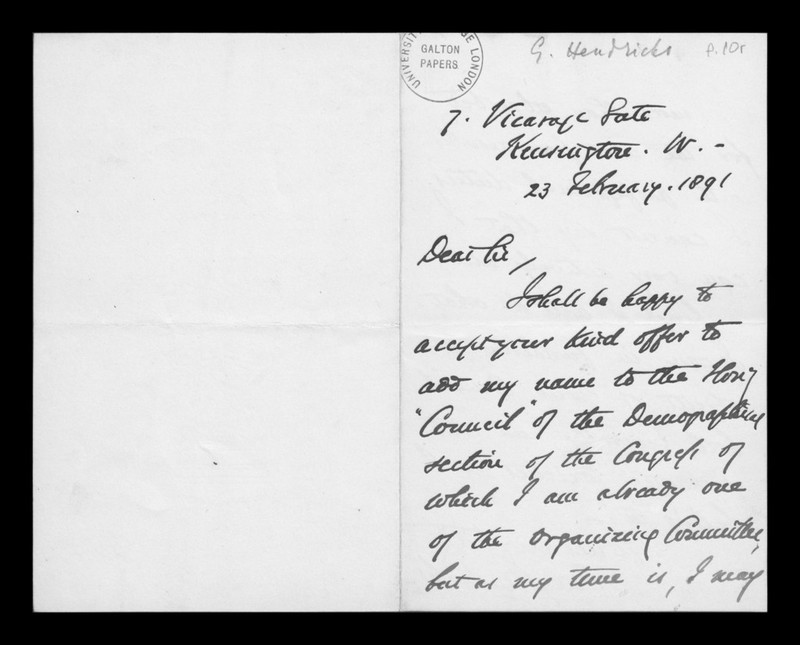 UNIVERSITY COLLEGE LONDON
GALTON
PAPERS
G. Hendricks p.10r
7. Vicarage Gate
Kensington. W. -
23 February. 1891
Dear Sir,
I shall be happy to
accept your kind offer to
add my name to the Hon:y
"Council" of the Demographical
section of the Congress of
which I am already one
of the Organizing Committee,
but as my time is, I may